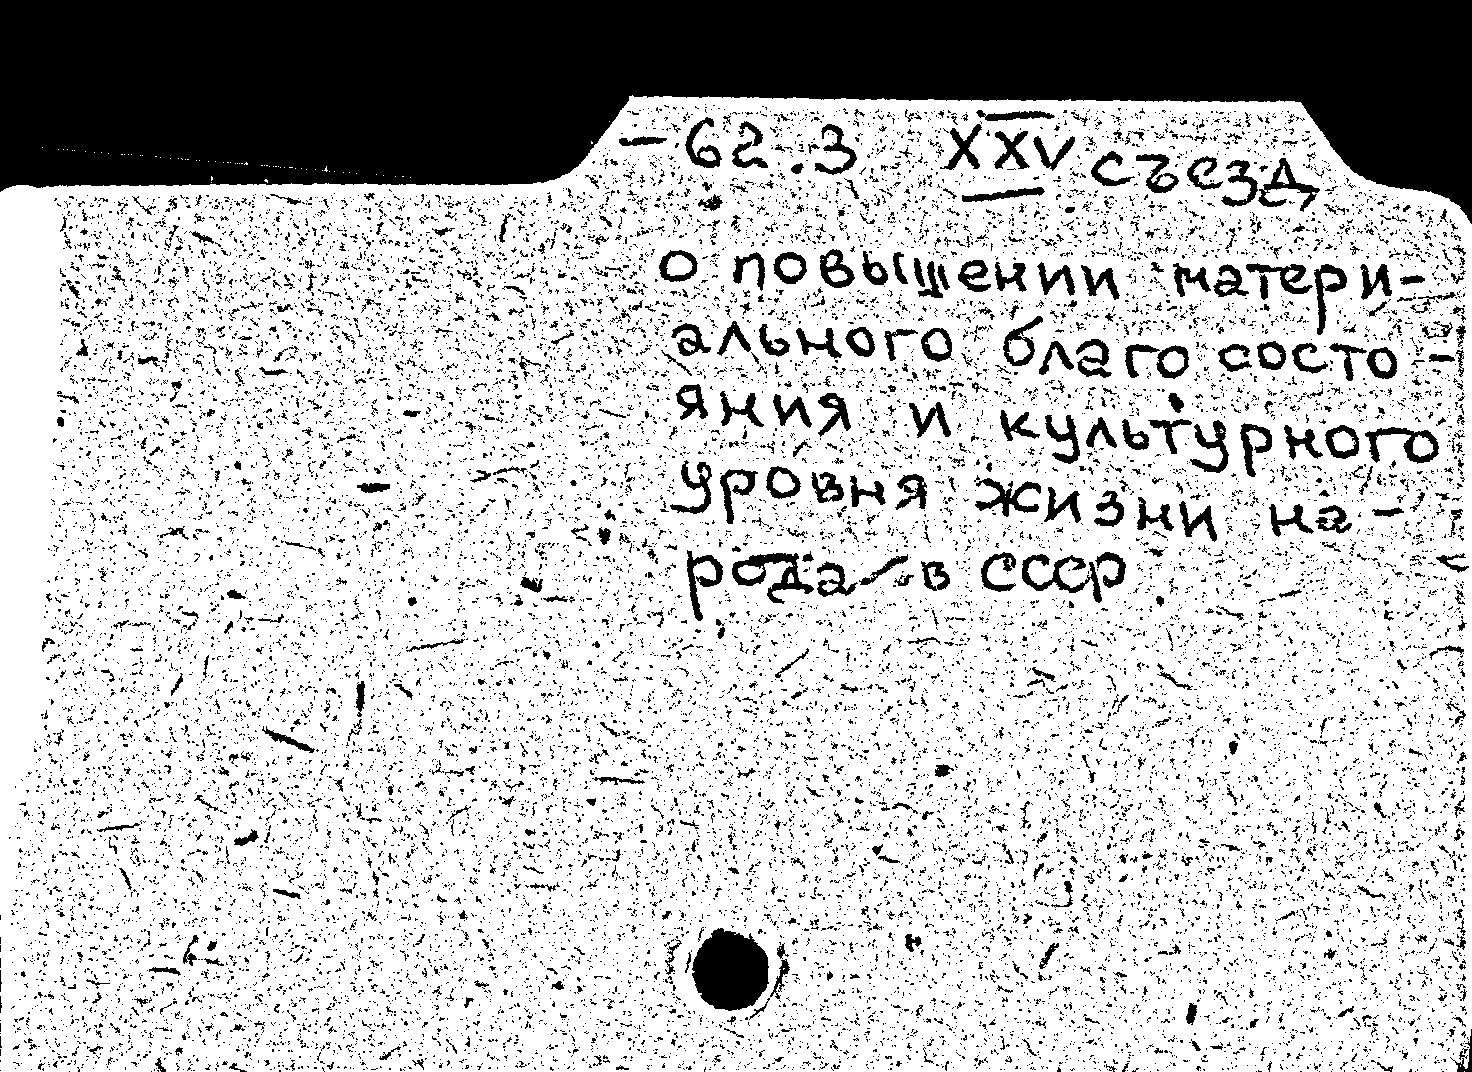 -62.3 XXV съезд
о повышении матери-
ального благососто-
яния и культурного
уровня жизни на-
рода в СССР